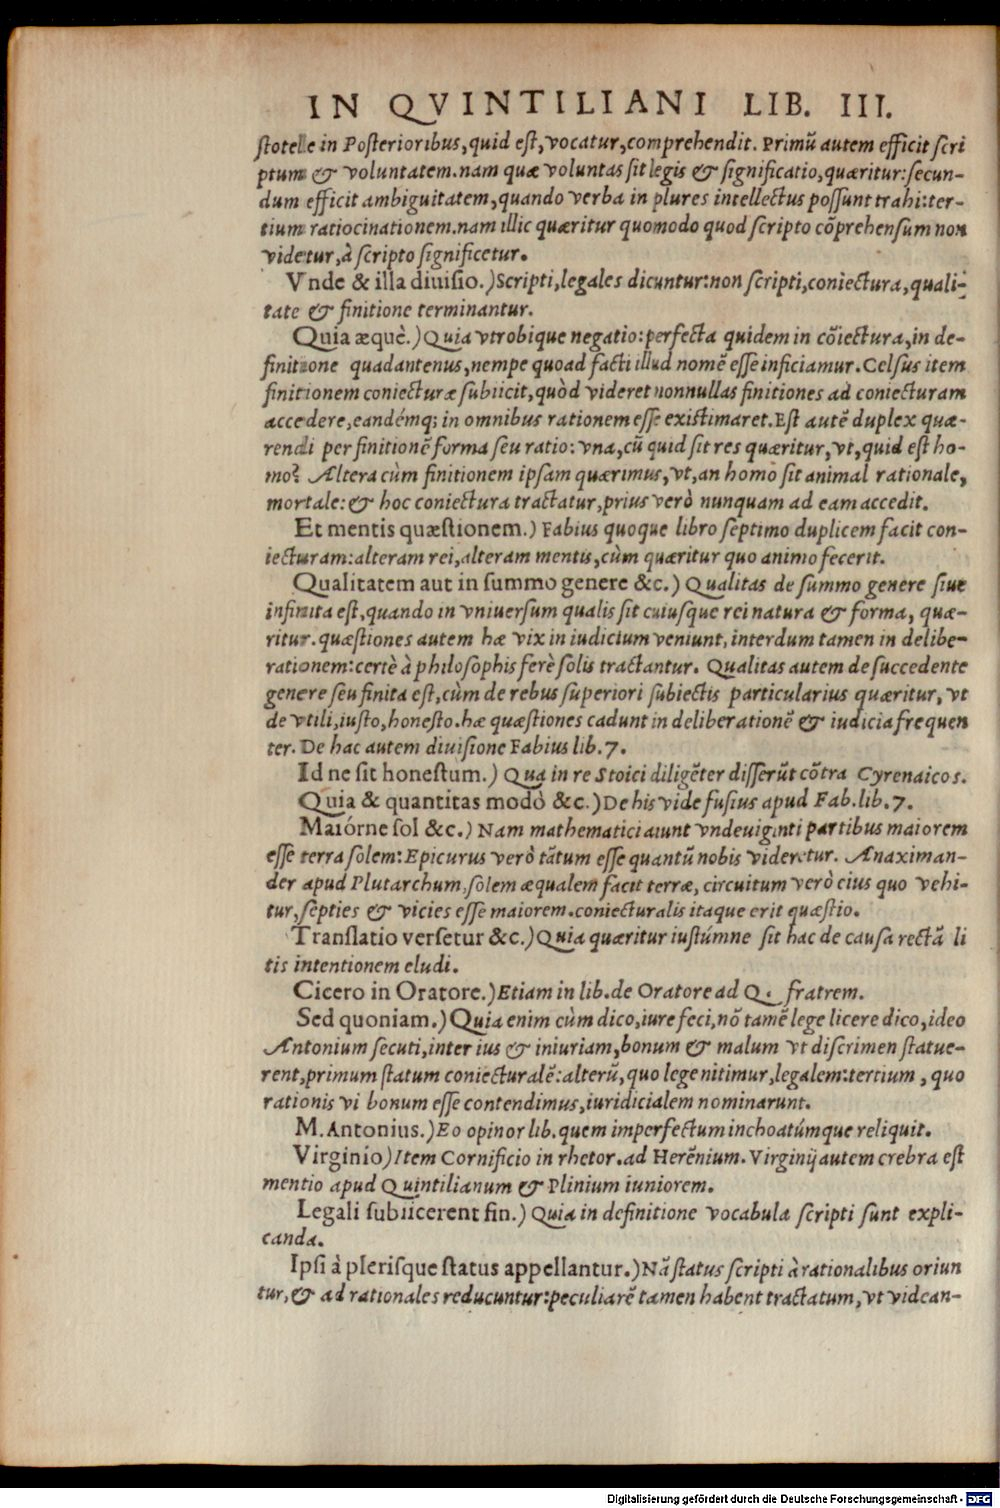 IN QVINTILIANI LIB. III.
ſtotele in Poſterioribus,quid eſt,vocatur,comprehendit. Primũ autem efficit ſcri
ptum & voluntatem.nam quæ voluntas ſit legis & ſignificatio,quæritur:ſecun-
dum efficit ambiguitatem,quando verba in plures intellectus poſſunt trahi:ter-
tium ratiocinationem.nam illic quæritur quomodo quod ſcripto cõprehenſum non
videtur,à ſcripto ſignificetur.
Vnde & illa diuiſio.)Scripti,legales dicuntur:non ſcripti,coniectura,quali-
tate & finitione terminantur.
Quia æquè.)Quia vtrobique negatio:perfecta quidem in cõiectura,in de-
finitione quadantenus,nempe quoad facti illud nomẽ eſſe inficiamur.Celſus item
finitionem coniecturæ ſubiicit,quòd videret nonnullas finitiones ad coniecturam
accedere,eandémq; in omnibus rationem eſſe exiſtimaret.Eſt autẽ duplex quæ-
rendi per finitionẽ forma ſeu ratio: vna,cũ quid ſit res quæritur,vt,quid eſt ho-
mo? Altera cùm finitionem ipſam quærimus,vt,an homo ſit animal rationale,
mortale:& hoc coniectura tractatur,prius verò nunquam ad eam accedit.
Et mentis quæſtionem.) Fabius quoque libro ſeptimo duplicem facit con-
iecturam:alteram rei,alteram mentis,cùm quæritur quo animo fecerit.
Qualitatem aut in ſummo genere &c.) Qualitas de ſummo genere ſiue
infinita eſt,quando in vniuerſum qualis ſit cuiuſque rei natura & forma, quæ-
ritur.quæſtiones autem hæ vix in iudicium veniunt,interdum tamen in delibe-
rationem:certè à philoſophis ferè ſolis tractantur. Qualitas autem de ſuccedente
genere ſeu finita eſt,cùm de rebus ſuperiori ſubiectis particularius quæritur, vt
de vtili,iuſto,honeſto.hæ quæſtiones cadunt in deliberationẽ & iudicia frequen
ter. De hac autem diuiſione Fabius lib.7.
Id ne ſit honeſtum.) Qua in re Stoici diligẽter diſſerũt cõtra Cyrenaicos.
Quia & quantitas modò &c.)De his vide fuſius apud Fab.lib.7.
Maiórne ſol &c.) Nam mathematici aiunt vndeuiginti partibus maiorem
eſſe terra ſolem:Epicurus verò tãtum eſſe quantũ nobis videretur. Anaximan-
der apud Plutarchum,ſolem æqualem facit terræ, circuitum verò eius quo vehi-
tur,ſepties & vicies eſſe maiorem.coniecturalis itaque erit quæſtio.
Tranſlatio verſetur &c.)Quia quæritur iuſtúmne ſit hac de cauſa rectã li
tis intentionem eludi.
Cicero in Oratore.)Etiam in lib.de Oratore ad Q. fratrem.
Sed quoniam.)Quia enim cùm dico,iure feci,nõ tamẽ lege licere dico,ideo
Antonium ſecuti,inter ius & iniuriam,bonum & malum vt diſcrimen ſtatue-
rent,primum ſtatum coniecturalẽ:alterũ,quo lege nitimur,legalem:tertium , quo
rationis vi bonum eſſe contendimus,iuridicialem nominarunt.
M.Antonius.)Eo opinor lib.quem imperfectum inchoatúmque reliquit.
Virginio)Item Cornificio in rhetor.ad Herẽnium.Virginij autem crebra eſt
mentio apud Quintilianum & Plinium iuniorem.
Legali ſubiicerent fin.) Quia in definitione vocabula ſcripti ſunt expli-
canda.
Ipſi à pleriſque ſtatus appellantur.)Nã ſtatus ſcripti à rationalibus oriun
tur,& ad rationales reducuntur:peculiarẽ tamen habent tractatum,vt videan-
Digitalisierung gefördert durch die Deutsche Forschungsgemeinschaft - DFG